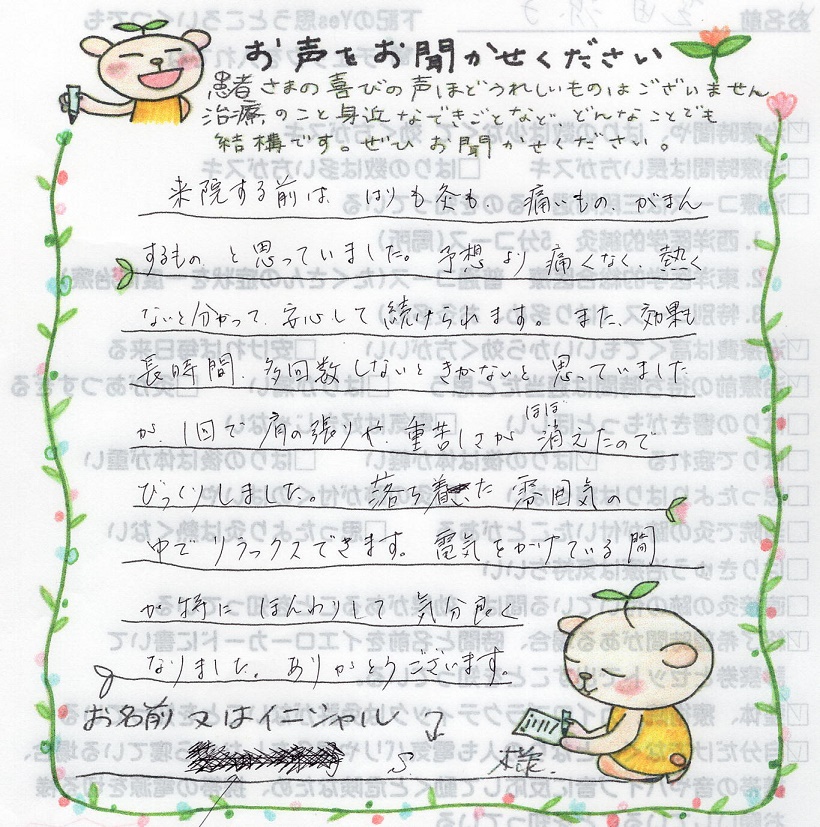 お声をお聞かせください
患者さまの喜びの声ほどうれしいものはございません
治療のこと身近なできごとなど、どんなことでも
結構です。ぜひお聞かせください。
来院する前は はりも灸も、痛いもの、がまん
するもの と思っていました。予想より痛くなく、熱く
ないと分かって、安心して続けられます。また、効果も
長時間、多回数しないときかないと思っていました
が、1回で肩の張りや、重苦しさがほぼ消えたので
びっくりしました。落ち着いた雰囲気の
中でリラックスできます。電気をかけている間
が特にほんわりして気分良く
なりました。ありがとうございます。
お名前又はイニシャル
S. 様